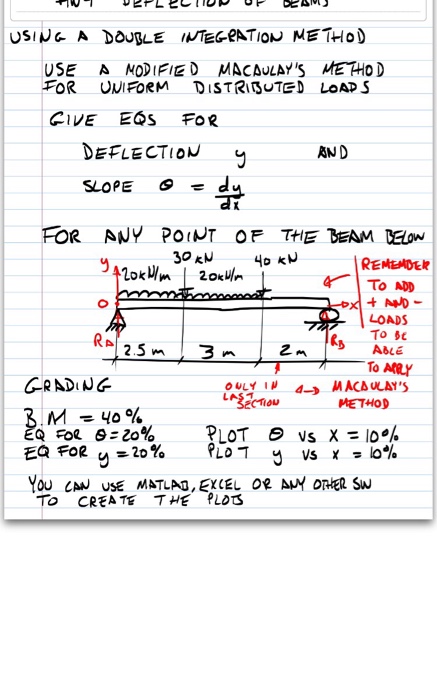 DEFLECTION OF BEAMS
USING A DOUBLE INTEGRATION METHOD
USE A MODIFIED MACAULAY'S METHOD
FOR UNIFORM DISTRIBUTED LOADS
GIVE EQS FOR
DEFLECTION y AND
SLOPE θ = dy
dx
FOR ANY POINT OF THE BEAM BELOW
30 kN
40 kN
y
20kN/m
20kN/m
O
x
RA
RB
2.5 m
3 m
2 m
REMEMBER
TO ADD
+ AND -
LOADS
TO BE
ABLE
TO APPLY
MACAULAY'S
METHOD
ONLY IN
LAST
SECTION
GRADING
B.M = 40%
EQ FOR θ = 20%
PLOT θ vs X = 10%
EQ FOR y = 20%
PLOT y vs x = 10%
YOU CAN USE MATLAB, EXCEL OR ANY OTHER SW
TO CREATE THE PLOTS